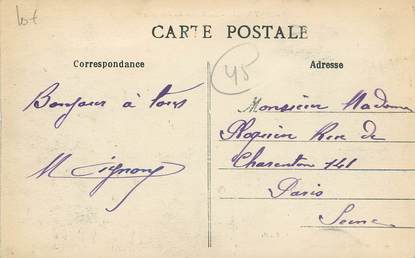 lot
CARTE POSTALE
45
Correspondance
Adresse
Bonjour à tous
M.
Monsieur Madame
Rue de
Charenton 141
Paris
Seine